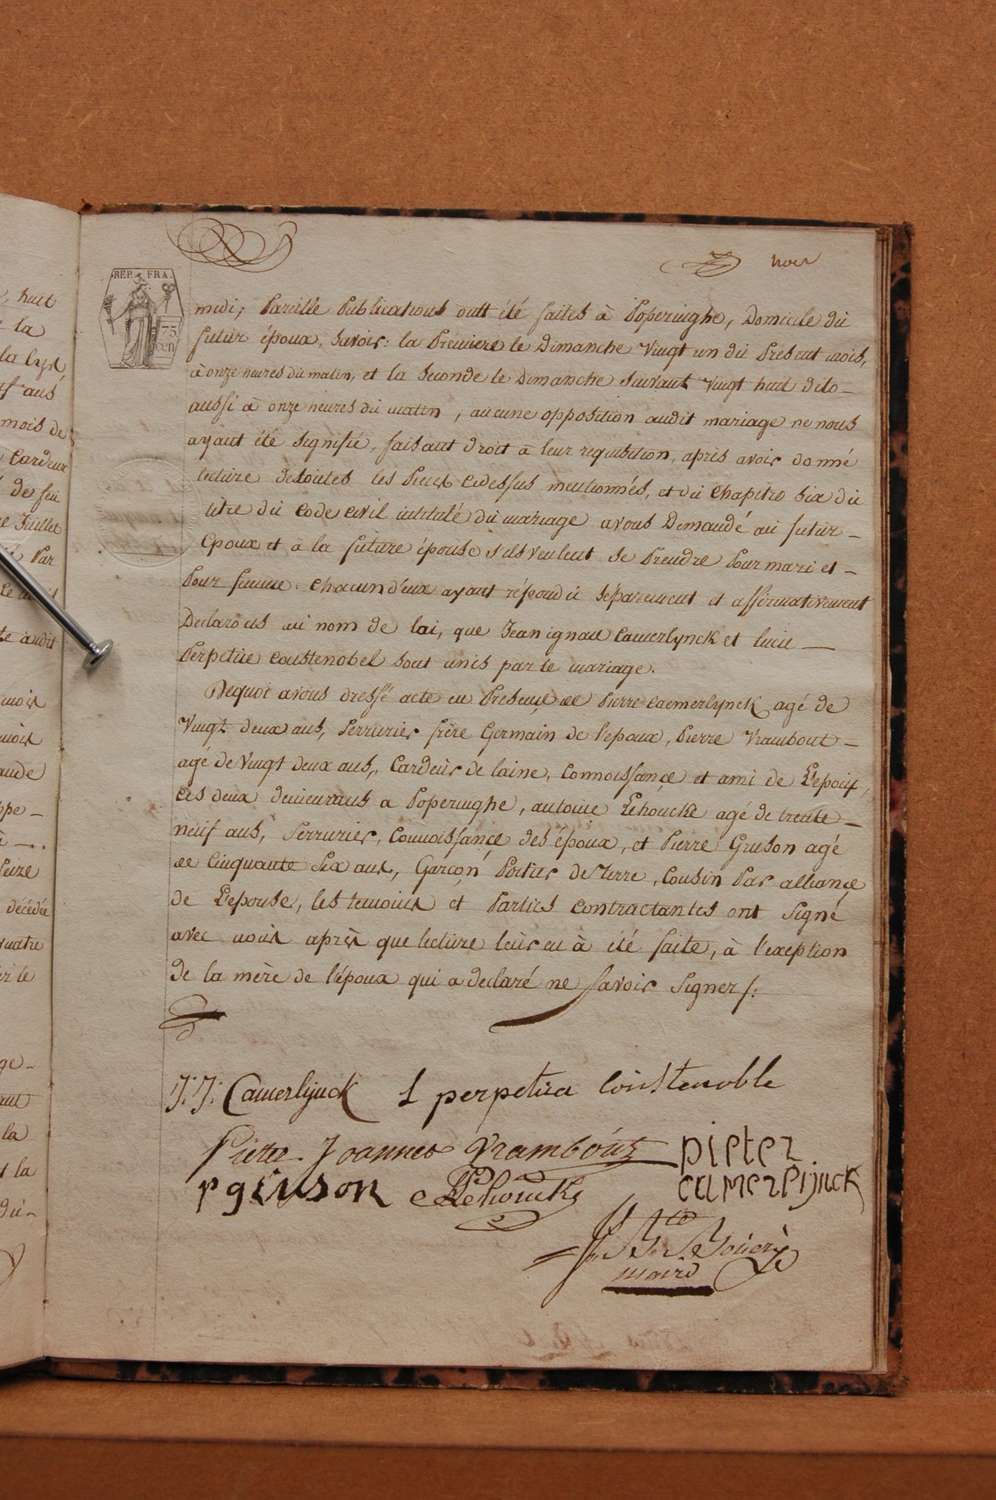 REP. FRA.
75
midi, Pareille Publications ontt été faites à Poperinghe, Domicile du
futur époux, Savoir: la Premiere le Dimanche Vingt un du Present mois,
à onze heures du matin, et la Seconde le Dimanche Suivant Vingt huit dito –
aussi à onze heures du matin, aucune opposition audit mariage ne nous
ayant été Signifié, faisant droit à leur requisition, après avoir donné
lecture detoutes les Pieces cidessus mentionnés, et du Chapitre Six du
titre du Code Civil intitulé du mariage avons Demandé au futur –
Epoux et à la future épouse s'ils veulent se Prendre Pour mari et –
Pour femme. chacun d'eux ayant répondu séparement et affirmativement
Declarons au nom de loi, que Jean ignace Camerlynck et lucie —
Perpetüe Coustenobel sont unis par le mariage.
Dequoi avons dressé acte en Presence de Pierre Camerlynck agé de
Vingt deux ans, Serrurier frère Germain de l'epoux, Pierre Vrambout –
agé de Vingt deux ans, Cardeur de laine, Connoissance et ami de L'epoux,
ces deux demeurans a Poperinghe, antoine Lehoucke agé de trente –
neuf ans, Serrurier, Connoissance des époux, et Pierre Gruson agé
de Cinquante Six ans, Garçon Potier de Terre, Cousin Par alliance
de L'epouse, les temoins et Parties Contractantes ont Signé
avec nous après que lecture leur en à été faite, à l'exception
de la mère de l'époux qui a declaré ne Savoir Signer /:
J: J: Camerlijnck l perpetüa Coustenoble
Pieter Joannes Vramboút pieter
p gruson Lehoucke camerlijnck
maire
huit
la
ans
mois de
Cardeur
de feu
Juillet
Par
audit
nous
ppe –
décédée
quatre
la
t la